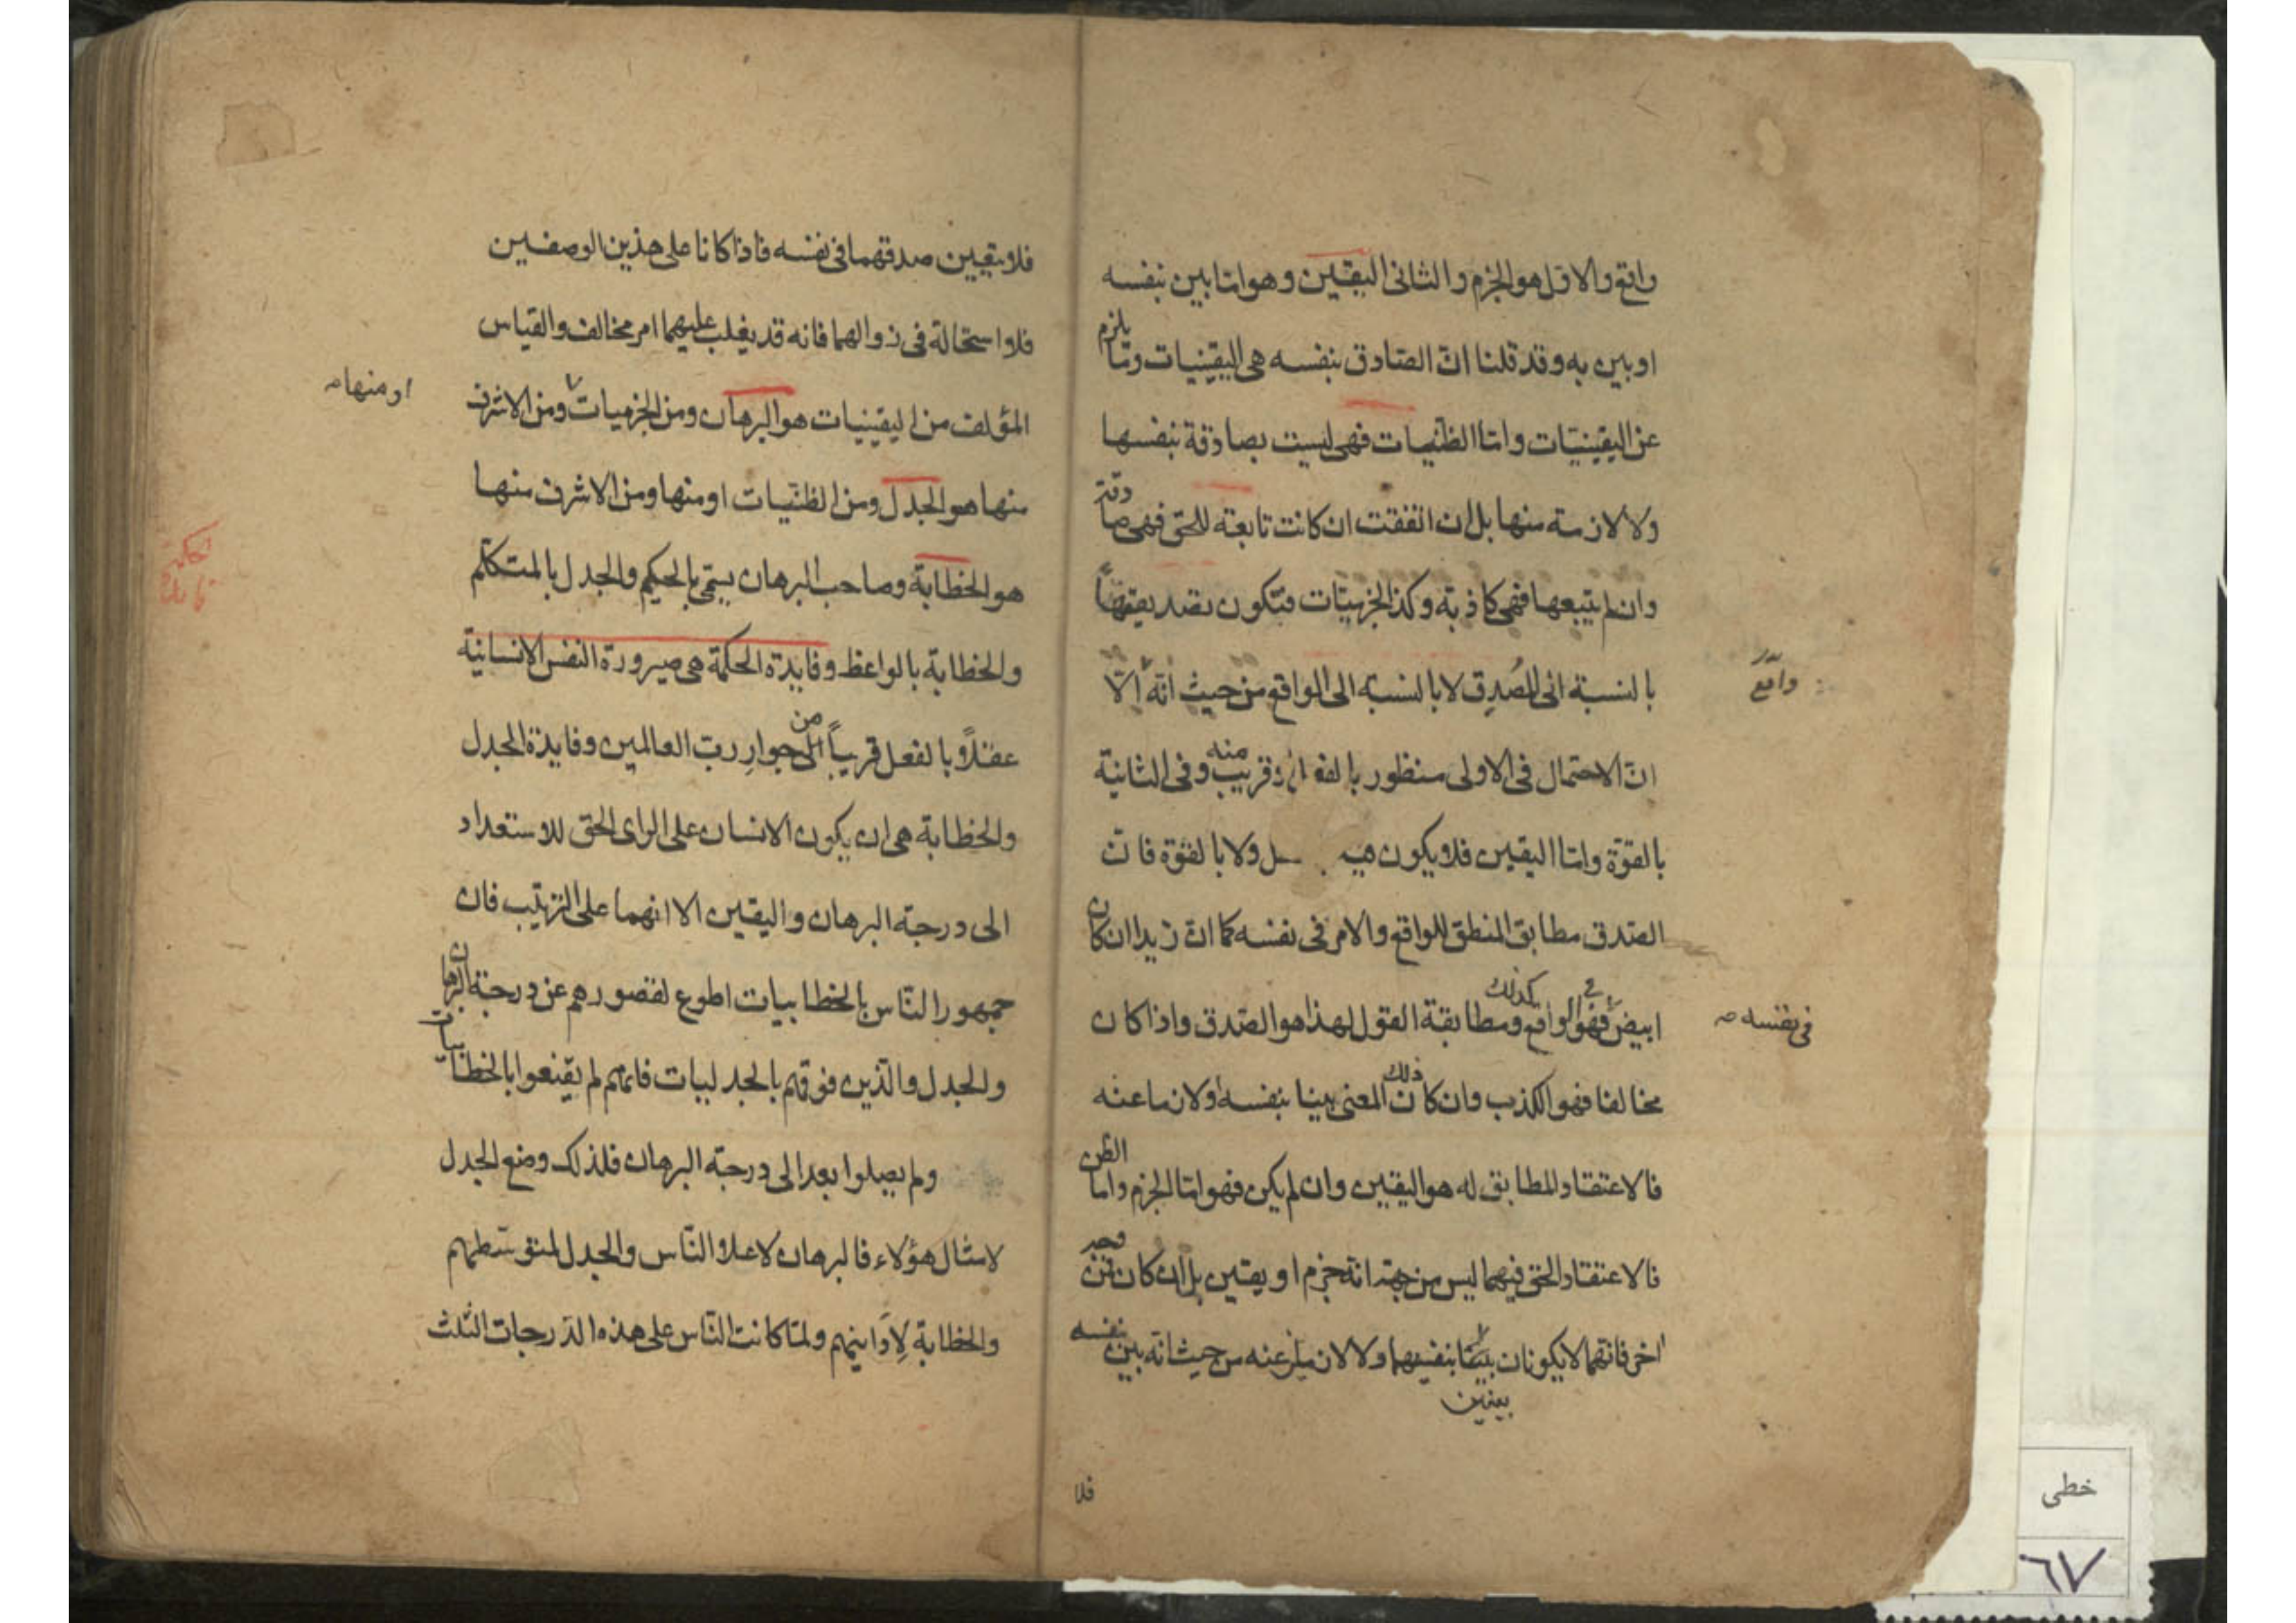 واقع والاول هو الجزم والثانى اليقين وهو اما بين بنفسه
او بين به وقد قلنا ان الصادق بنفسه هى اليقينيات وما يلزم
عن اليقينيّات واما الظنّيات فهى ليست بصادقة بنفسها
ولا لازمة منها بل ان اتفقت ان كانت تابعة للحق فهى صادقة
وان لم يتبعها فهى كاذبة وكذا الجزميّات فتكون تصديقها
بالنسبة الى المُصدِق لا بالنسبة الى الواقع من حيث انّه الّا
واقع
انّ الاحتمال فى الاولى منظور بالفعل وقريب منه وفى الثانية
بالقوّة واما اليقين فلا يكون فيه ولا بالقوّة فانّ
الصّدق مطابق المنطق للواقع والامر فى نفسه كما انّ زيدا ان كان
ابيض فهو فى الواقع كذلك ومطابقة القول لهذا هو الصّدق واذا كان
فى نفسه صح
مخالفا فهو الكذب وان كان ذلك المعنى بينا بنفسه او لازما عنه
فالاعتقاد المطابق له هو اليقين وان لم يكن فهو اما الجزم واما الظن
فالاعتقاد الحق فيهما ليس من جهة انه جزم او يقين بل ان كان
اخر فانهما لا يكونان بينا بنفسهما ولا لازم عنه من حيث انه بين بنفسه
بينين
فلا
فلا يتعين صدقهما فى نفسه فاذا كانا على هذين الوصفين
فلا استحالة فى زوالهما فانه قد يغلب عليهما امر مخالف والقياس
المؤلف من اليقينيات هو البرهان ومن الجزميات ومن الاشرف
او منها صح
منها هو الجدل ومن الظنّيات او منها ومن الاشرف منها
هو الخطابة وصاحب البرهان يسمّى بالحكيم والجدل بالمتكلم
والخطابة بالواعظ وفايدة الحكمة هى صيرورة النفس الانسانية
عقلاً بالفعل قريباً من جوار رب العالمين وفايدة الجدل
والخطابة هى ان يكون الانسان على الراى الحق للاستعداد
الى درجة البرهان واليقين الا انهما على الترتيب فان
جمهور النّاس بالخطابيات اطوع لقصورهم عن درجة البرهان
والجدل والّذين فوقهم بالجدليات فانهم لم يقنعوا بالخطابيات
ولم يصلوا بعد الى درجة البرهان فلذلك وضع الجدل
لامثال هؤلاء فالبرهان لاعلا النّاس والجدل لمتوسّطهم
والخطابة لِاَدانيهم ولمّا كانت النّاس على هذه الدّرجات الثلث
خطى
٦٧